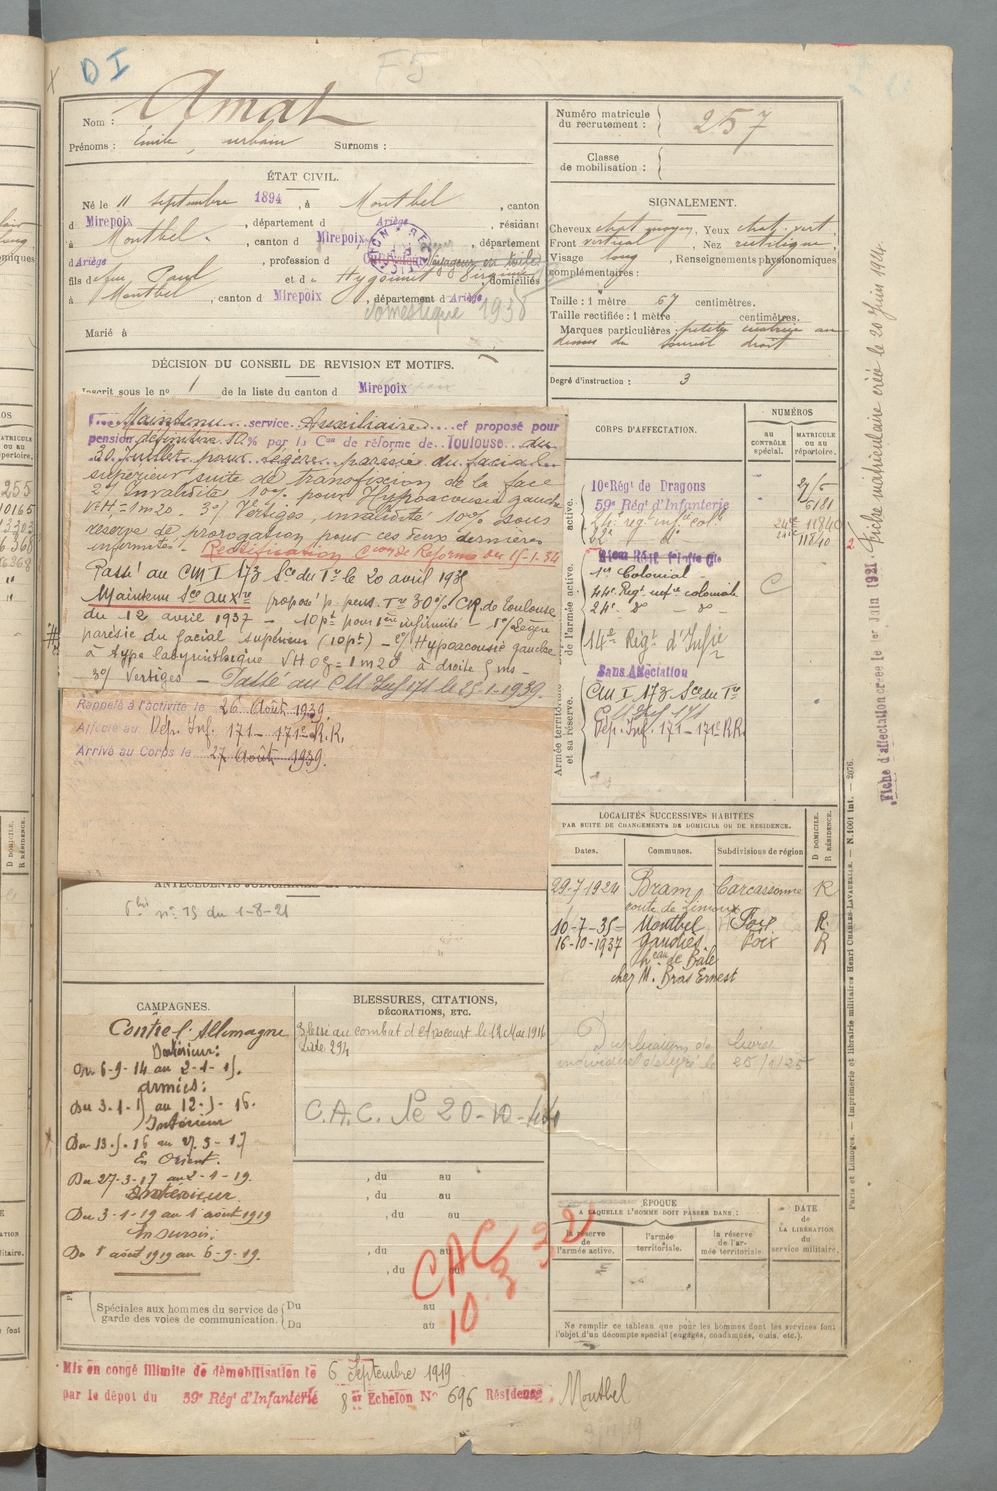 DI
F5
Nom : Amat
Prénoms : Emile, urbain Surnoms :
Numéro matricule du recrutement : 257
Classe de mobilisation :
ÉTAT CIVIL.
Né le 11 septembre 1894, à Montbel, canton
d Mirepoix, département d Ariège, résidant
à Montbel, canton d Mirepoix, département
d Ariège, profession d Cultivateur
fils de feu Paul et d Virginie, domiciliés
à Montbel, canton d Mirepoix, département d Ariège
domestique 1938
Marié à
SIGNALEMENT.
Cheveux chat. moyen, Yeux chat. vert
Front vertical, Nez rectiligne
Visage long, Renseignements physionomiques
complémentaires :
Taille : 1 mètre 67 centimètres.
Taille rectifiée : 1 mètre centimètres.
Marques particulières : petite cicatrice au
dessus du sourcil droit
Degré d'instruction : 3
DÉCISION DU CONSEIL DE REVISION ET MOTIFS.
Inscrit sous le n° 1 de la liste du canton d Mirepoix
Maintenu service Auxiliaire et proposé pour
pension définitive 10% par la Con de réforme de Toulouse du
30 Juillet pour légère parésie du facial
supérieur suite de transfixion de la face
2°/ Invalidité 10% pour Hypoacousie gauche
VH = 1m20. 3°/ Vertiges, invalidité 10% sous
réserve de prorogation pour ces deux dernières
infirmités. Rectification Con de Réforme du 15-1-34
Passé au CM I 173 Sce du Tr le 20 avril 1935
Maintenu Sce auxre proposé p. pens. Tre 30% CR. de Toulouse
du 12 avril 1937 – 10pt pour 1ère infirmité – 1°/ Légère
parésie du facial supérieur (10pt) – 2°/ Hypoacousie gauche
à type labyrinthique VH og = 1m20 à droite 5 ms –
3°/ Vertiges – Passé au CM Inf 171 le 25-1-1939.
Rappelé à l'activité le 26 Août 1939.
Affecté au Dép. Inf. 171 – 171e R.R.
Arrivé au Corps le 27 Août 1939.
CORPS D'AFFECTATION.
NUMÉROS
AU CONTRÔLE spécial.
MATRICULE OU AU répertoire.
10e Régt de Dragons
59e Régt d'Infanterie 6181
24e régt inft colle 11840
22e do 11840
1er Colonial
44e Régt infie coloniale
24e
14e Régt d'Infie
Sans Affectation
CM I 173 Sce du Tr
CM Inf 171
Dép. Inf. 171 – 171e RR.
active.
de l'armée active.
Armée territoriale et sa réserve.
LOCALITÉS SUCCESSIVES HABITÉES
PAR SUITE DE CHANGEMENTS DE DOMICILE OU DE RÉSIDENCE.
Dates. Communes. Subdivisions de région D DOMICILE. R RÉSIDENCE.
29-7-1924 Bram Carcassonne R
route de Limoux
10-7-35 Montbel Foix R.
16-10-1937 Gaudiès Foix R
heau de Bale
chez M. Bros Ernest
Duplicata de livret
individuel délivré le 25/9/25
ANTÉCÉDENTS JUDICIAIRES
n° 15 du 1-8-21
CAMPAGNES.
Contre l'Allemagne
Intérieur:
Du 6-9-14 au 2-1-15.
Armées:
Du 3-1-15 au 12-5-16.
Intérieur
Du 13-5-16 au 27-3-17
En Orient.
Du 27-3-17 au 2-1-19.
Intérieur.
Du 3-1-19 au 1 août 1919
En sursis:
Du 1 août 1919 au 6-9-19.
BLESSURES, CITATIONS,
DÉCORATIONS, ETC.
Blessé au combat d'Esnes le 12 Mai 1916
Liste 294
C.A.C. le 20-10-44
, du au
, du au
, du au
, du au
, du au
CAC 3 32
10
Spéciales aux hommes du service de
garde des voies de communication.
Du au
Du au
ÉPOQUE
A LAQUELLE L'HOMME DOIT PASSER DANS :
la réserve de l'armée active.
l'armée territoriale.
la réserve de l'armée territoriale
DATE de LA LIBÉRATION du service militaire.
Ne remplir ce tableau que pour les hommes dont les services font
l'objet d'un décompte spécial (engagés, condamnés, omis, etc.).
Mis en congé illimité de démobilisation le 6 Septembre 1919
par le dépôt du 59e Régt d'Infanterie 8er Echelon N° 696 Résidence Montbel
Fiche d'affectation créée le 1er Juin 1921. Fiche matriculaire créée le 20 Juin 1924
Paris et Limoges. — Imprimerie et librairie militaires Henri CHARLES-LAVAUZELLE. — N. 1001 Int. — 2076.